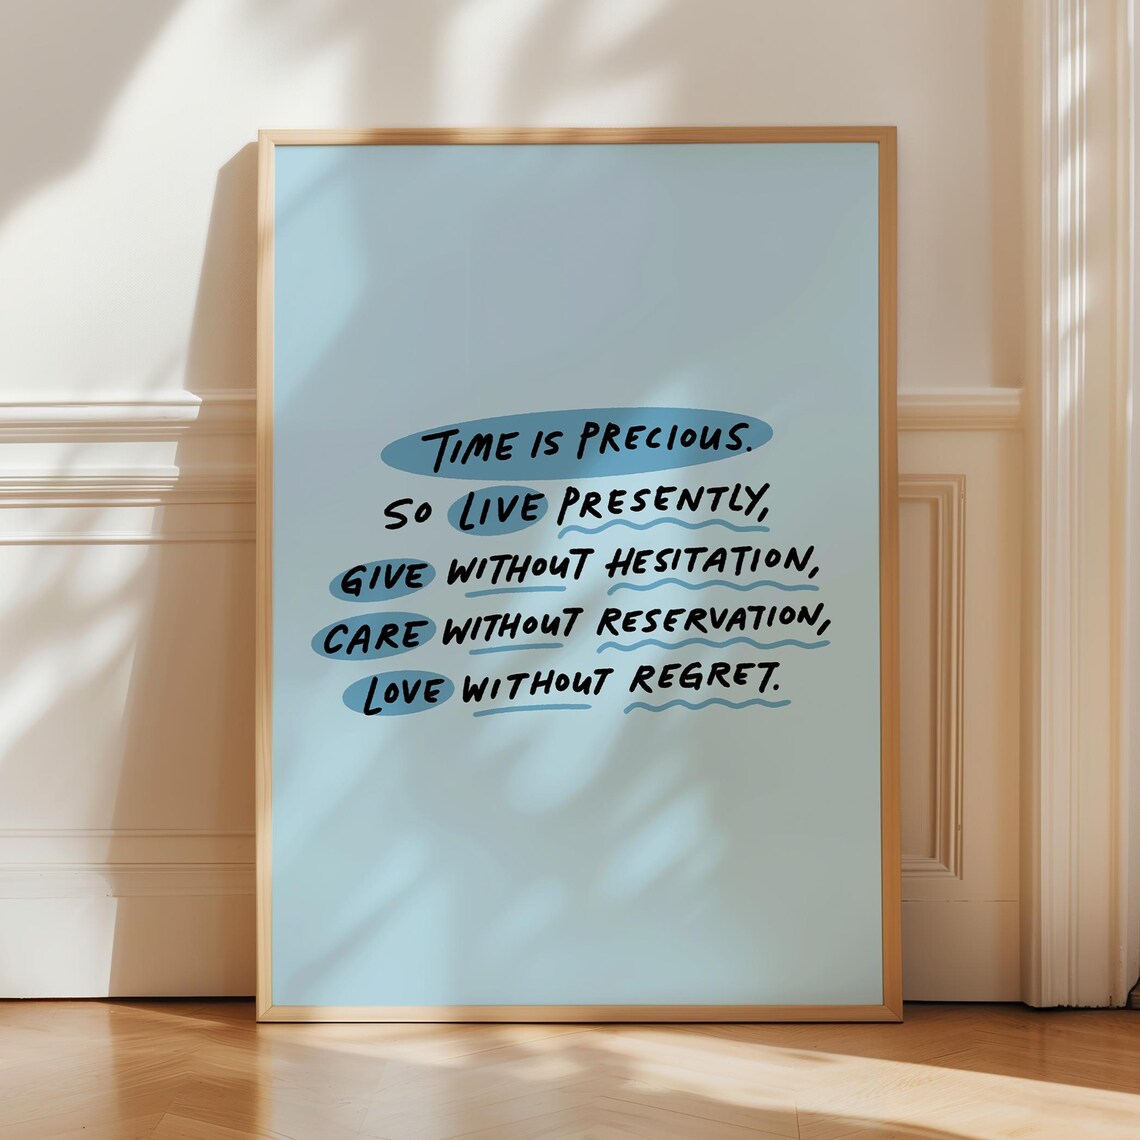 TIME IS PRECIOUS.
SO LIVE PRESENTLY,
GIVE WITHOUT HESITATION,
CARE WITHOUT RESERVATION,
LOVE WITHOUT REGRET.